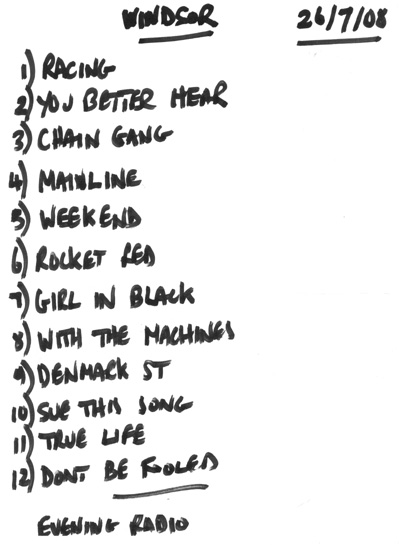 WINDSOR 26/7/08
1) RACING
2) YOU BETTER HEAR
3) CHAIN GANG
4) MAINLINE
5) WEEKEND
6) ROCKET RED
7) GIRL IN BLACK
8) WITH THE MACHINES
9) DENMARK ST
10) SUE THIS SONG
11) TRUE LIFE
12) DONT BE FOOLED
EVENING RADIO